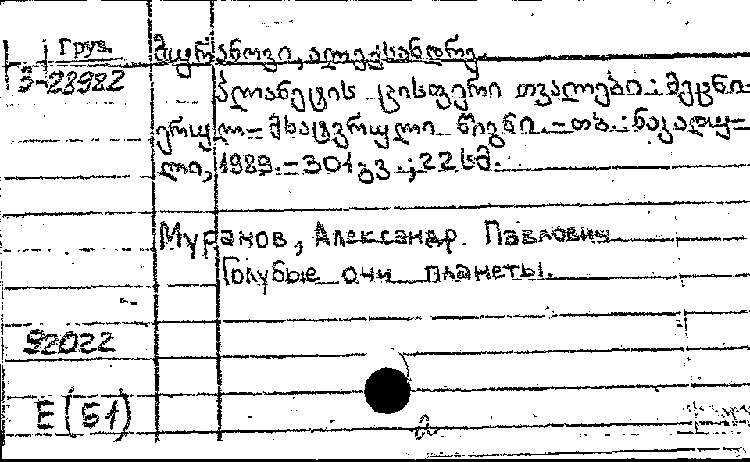 Груз.
მურანოვი, ალექსანდრე.
3-28982
პლანეტის ცისფერი თვალები: მეცნი-
ერულ-მხატვრული წიგნი.-თბ.:ნაკადუ-
ლი, 1989.-301გვ.;22სმ.
Муранов, Александр Павлович
Голубые очи планеты.
92022
Е(Б1)